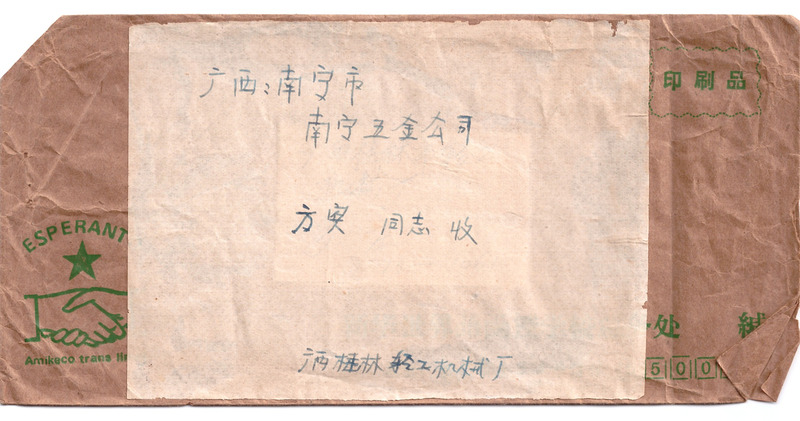 印刷品
广西：南宁市
南宁五金公司
方实 同志 收
ESPERANT
Amikeco trans li
处 缄
500
广西桂林轻工机械厂